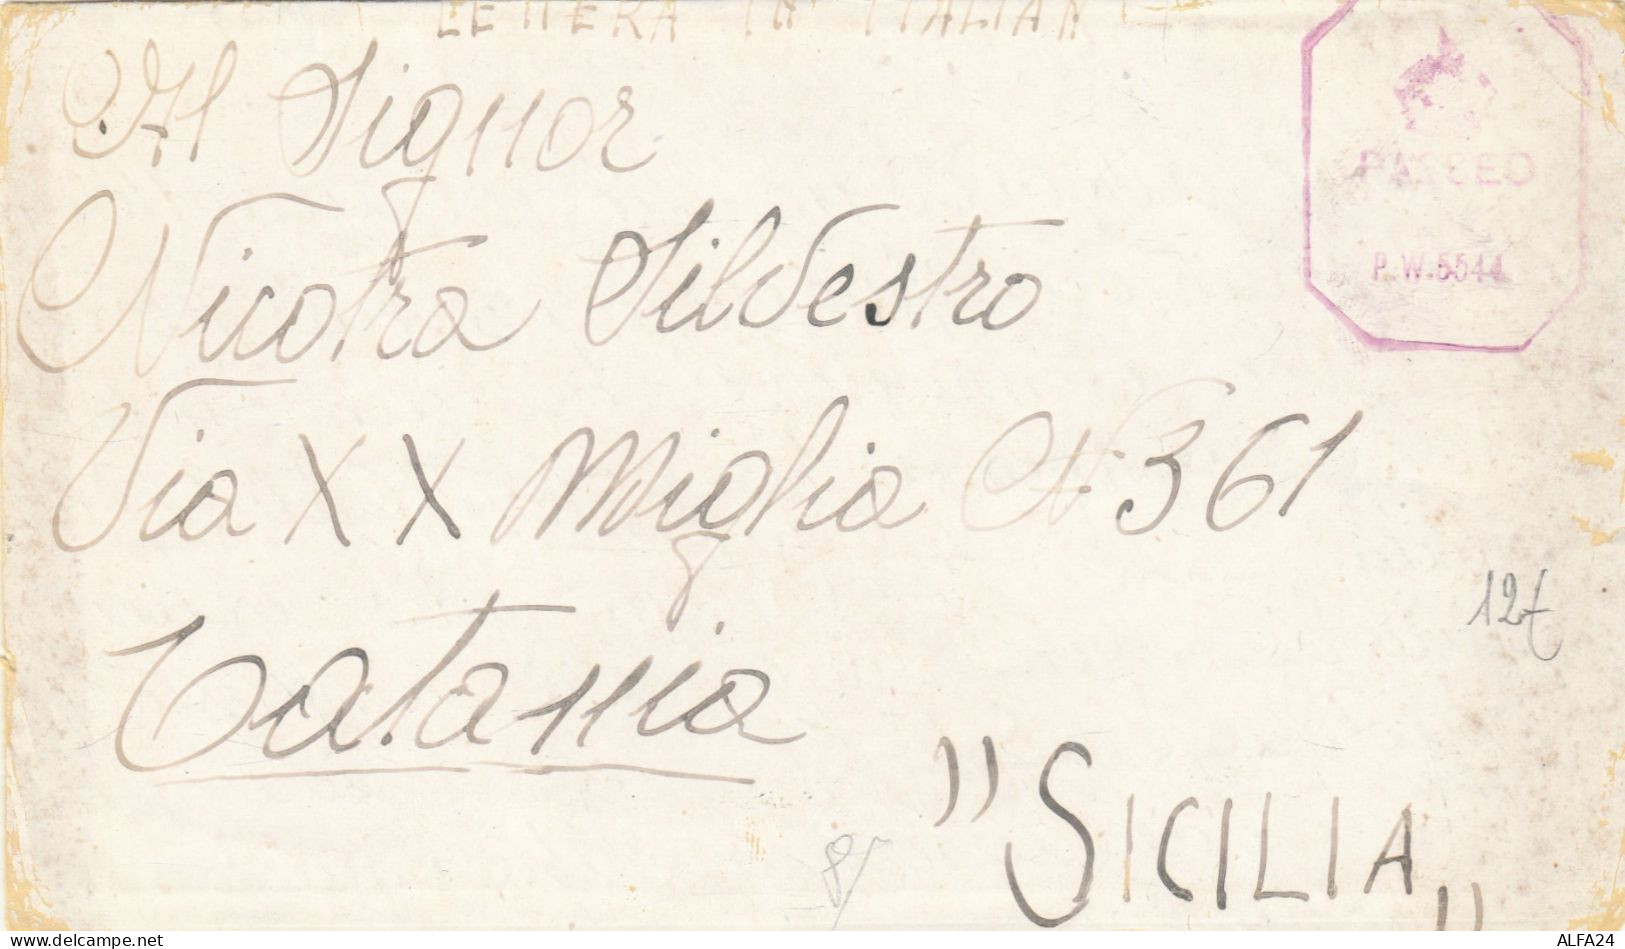 LETTERA IN ITALIAN
Al Signor
Nicotra Silvestro
Via XX Miglia N 361
Catania
"SICILIA"
PASSED
P.W.5544
12€
www.delcampe.net
ALFA24